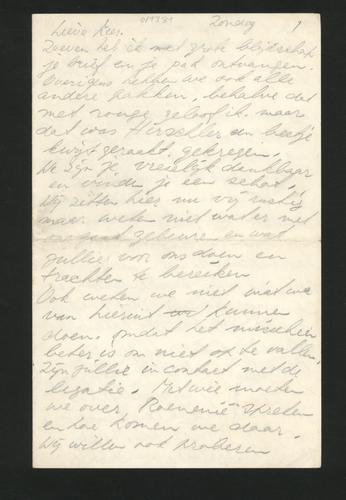 011381
Zondag 1
Lieve Kees.
Zoeven heb ik met grote blijdschap
je brief en je pak ontvangen.
Overigens hebben we ook alle
andere pakken, behalve dat
met rouge geloof ik. maar
dat was Hirschler een beetje
kwijt geraakt, gekregen.
We zijn je vreselijk dankbaar
en vinden je een schat.
Wij zitten hier nu vrij rustig
maar weten niet wat er met
ons gaat gebeuren en wat
jullie voor ons doen en
trachten te bereiken
Ook weten we niet wat we
van hieruit kunnen
doen. omdat het misschien
beter is om niet op te vallen.
Zijn jullie in contact met de
legatie. Met wie moeten
we over Roemenië spreken
en hoe komen we daar.
Wij willen ook proberen